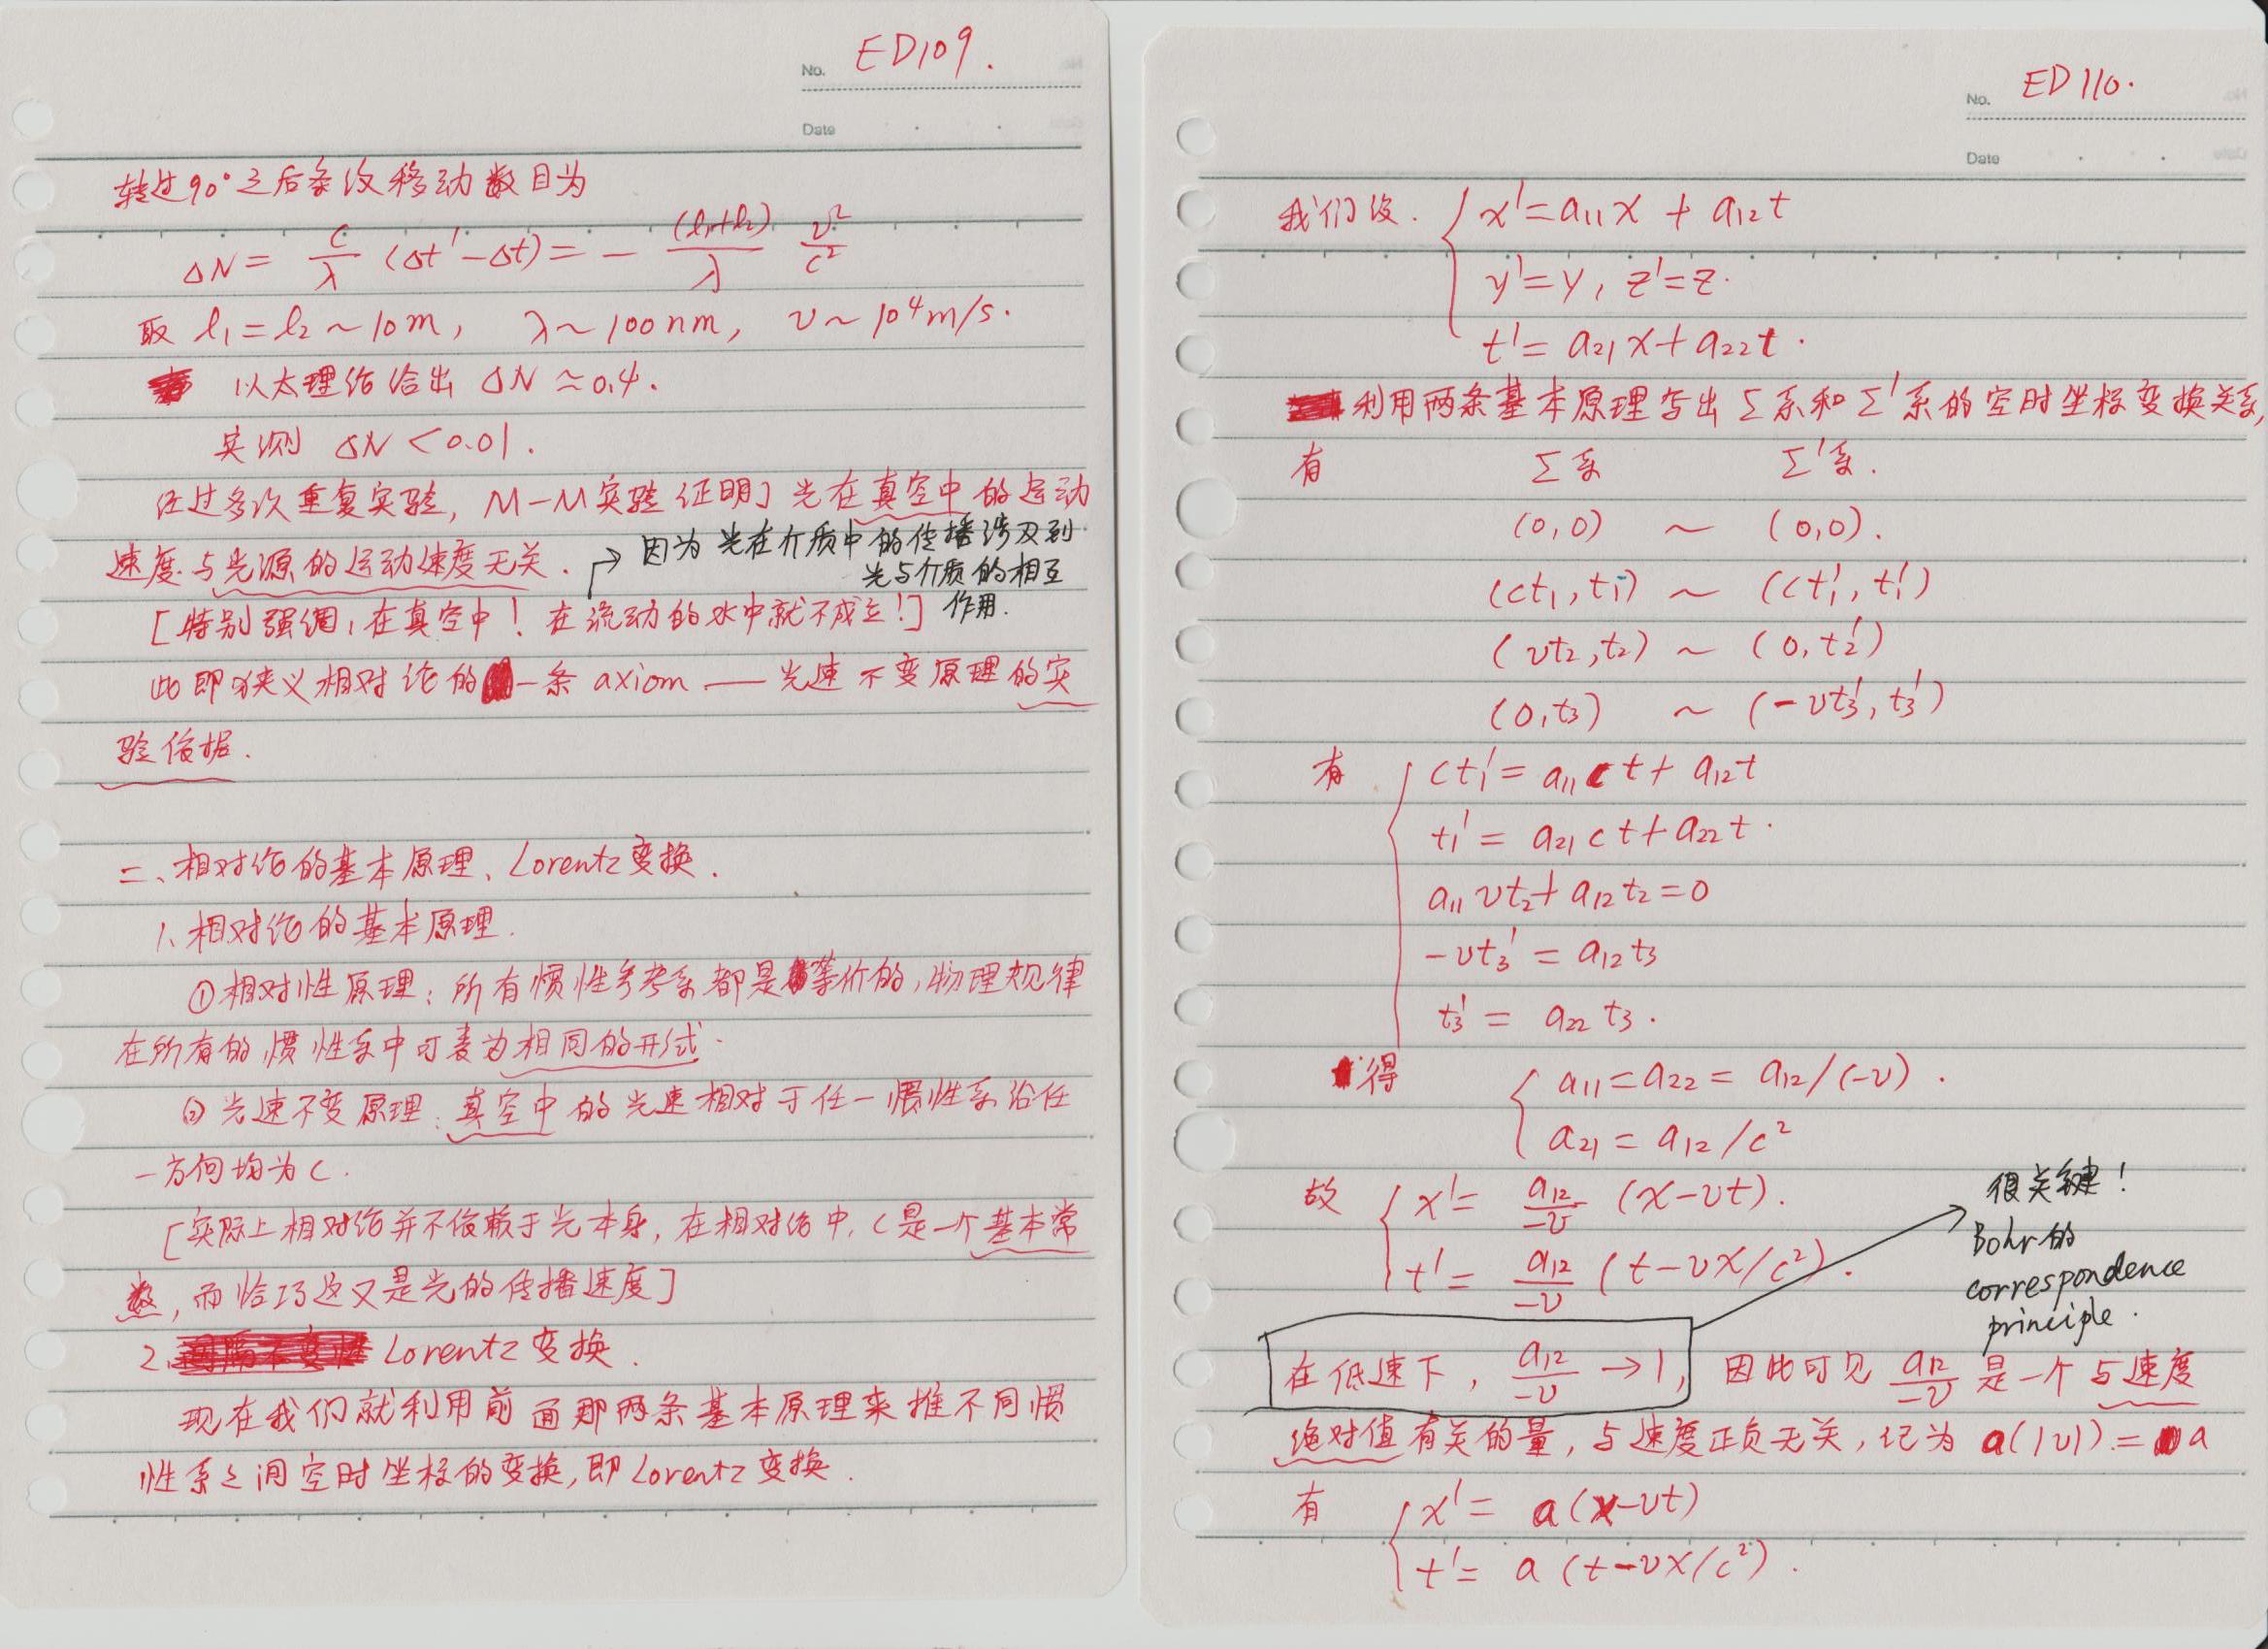 No. ED109.
Date
转过90°之后条纹移动数目为
ΔN = c/λ (Δt' - Δt) = - (l₁+l₂)/λ v²/c²
取 l₁ = l₂ ~ 10m, λ ~ 100nm, v ~ 10⁴m/s.
以太理论给出 ΔN ≈ 0.4.
实测 ΔN < 0.01.
经过多次重复实验, M-M实验证明了光在真空中的运动
速度与光源的运动速度无关.
→ 因为光在介质中的传播涉及到
光与介质的相互
作用.
[特别强调, 在真空中! 在流动的水中就不成立!]
此即狭义相对论的一条 axiom —— 光速不变原理的实
验依据.
二、相对论的基本原理、Lorentz变换.
1、相对论的基本原理.
①相对性原理: 所有惯性参考系都是等价的, 物理规律
在所有的惯性系中可表为相同的形式.
② 光速不变原理: 真空中的光速相对于任一惯性系沿任
一方向均为c.
[实际上相对论并不依赖于光本身, 在相对论中, c是一个基本常
数, 而恰巧这又是光的传播速度]
2、Lorentz变换.
现在我们就利用前面那两条基本原理来推不同惯
性系之间空时坐标的变换, 即Lorentz变换.
No. ED110.
Date
我们设. { x' = a₁₁x + a₁₂t
y' = y, z' = z.
t' = a₂₁x + a₂₂t.
利用两条基本原理写出Σ系和Σ'系的空时坐标变换关系,
有 Σ系 Σ'系.
(0,0) ~ (0,0).
(ct₁, t₁) ~ (ct₁', t₁')
(vt₂, t₂) ~ (0, t₂')
(0, t₃) ~ (-vt₃', t₃')
有 { ct₁' = a₁₁ct + a₁₂t
t₁' = a₂₁ct + a₂₂t.
a₁₁vt₂ + a₁₂t₂ = 0
-vt₃' = a₁₂t₃
t₃' = a₂₂t₃.
得 { a₁₁ = a₂₂ = a₁₂/(-v).
a₂₁ = a₁₂/c²
故 { x' = a₁₂/-v (x-vt).
t' = a₁₂/-v (t-vx/c²).
很关键!
Bohr的
correspondence
principle.
在低速下, a₁₂/-v → 1, 因此可见 a₁₂/-v 是一个与速度
绝对值有关的量, 与速度正负无关, 记为 a(|v|) = a
有 { x' = a(x-vt)
t' = a(t-vx/c²).